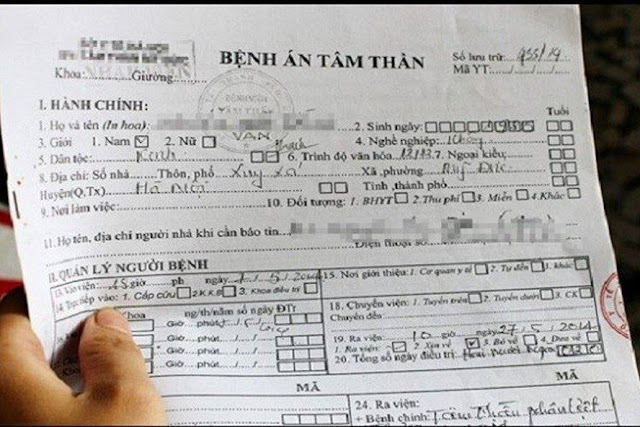 BỆNH ÁN TÂM THẦN
Số lưu trữ: 955/14
Khoa: Giường:
Mã YT:
I. HÀNH CHÍNH:
Tuổi
1. Họ và tên (In hoa): 2. Sinh ngày:
3. Giới 1. Nam 2. Nữ 4. Nghề nghiệp:
5. Dân tộc: Kinh 6. Trình độ văn hóa 12/12 7. Ngoại kiều:
8. Địa chỉ: Số nhà Thôn, phố Xã, phường
Huyện(Q,Tx) Tỉnh, thành phố
9. Nơi làm việc: 10. Đối tượng: 1. BHYT 2. Thu phí 3. Miễn 4. Khác
11. Họ tên, địa chỉ người nhà khi cần báo tin
Điện thoại số
II. QUẢN LÝ NGƯỜI BỆNH
13. Vào viện: 15 giờ ph ngày 7/5/2014
14. Trực tiếp vào: 1. Cấp cứu 2. K.K.B 3. Khoa điều trị
15. Nơi giới thiệu: 1. Cơ quan y tế 2. Tự đến 3. Khác
Khoa ng/th/năm số ngày ĐTr
Giờ phút
Giờ phút
Giờ phút
18. Chuyển viện: 1. Tuyến trên 2. Tuyến dưới 3. CK
Chuyển đến
19. Ra viện: 10 giờ ngày 27/5/2014
1. Ra viện 2. Xin về 3. Bỏ về 4. Đưa về
20. Tổng số ngày điều trị: Hai mươi ngày
MÃ
MÃ
24. Ra viện:
+ Bệnh chính: Tâm thần phân liệt